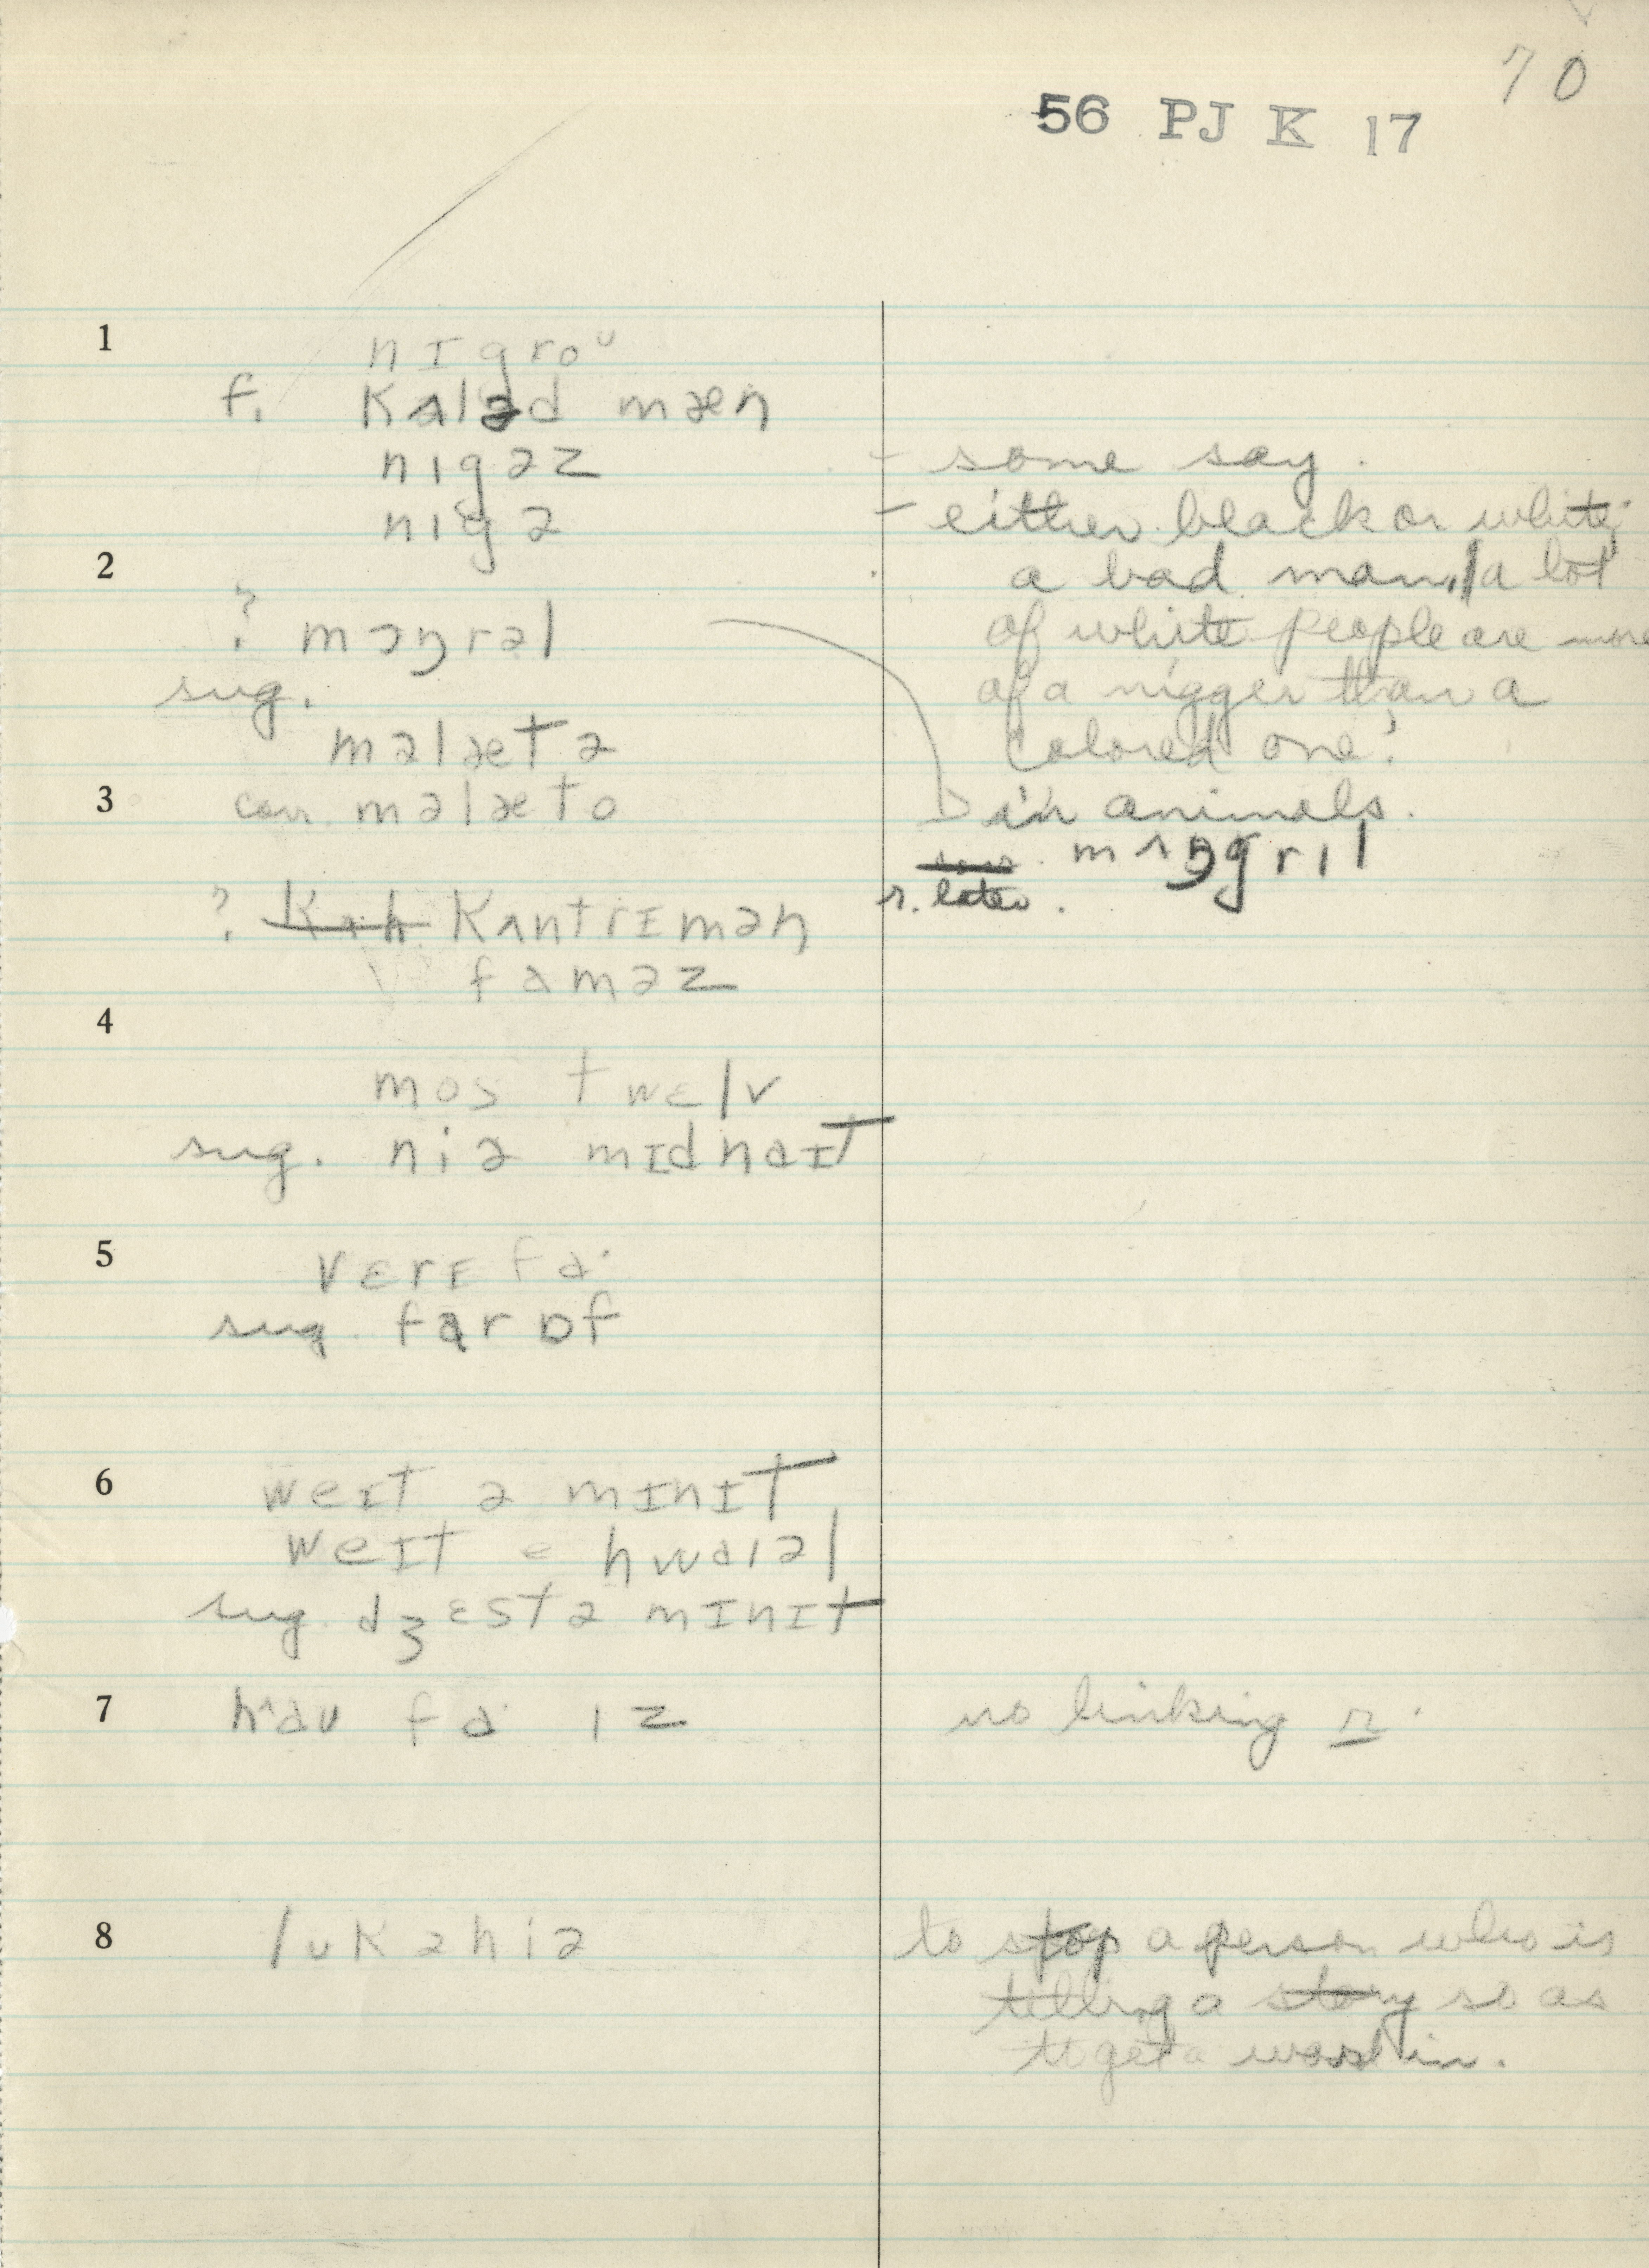 70
56 PJ K 17
1
nɪgroᵁ
f. kʌləd mæn
nigəz - some say.
nigə - either black or white,
2
a bad man, "a lot
? mɔŋrəl of white people are more
sug. of a nigger than a
məlætə colored one".
3
corr. məlæto in animals.
mʌŋgril
r. later.
? kʌntrɪmən
faməz
4
mos twɛlv
sug. niə mɪdnaɪt
5
vɛrɪ fa·
sug. far ɒf
6
weɪt ə mɪnɪt
weɪt ə hwaiəl
sug. dʒɛst ə mɪnɪt
7
hᶺaʊ fa· iz no linking r.
8
lʊk ə hiə to stop a person who is
telling a story so as
to get a word in.